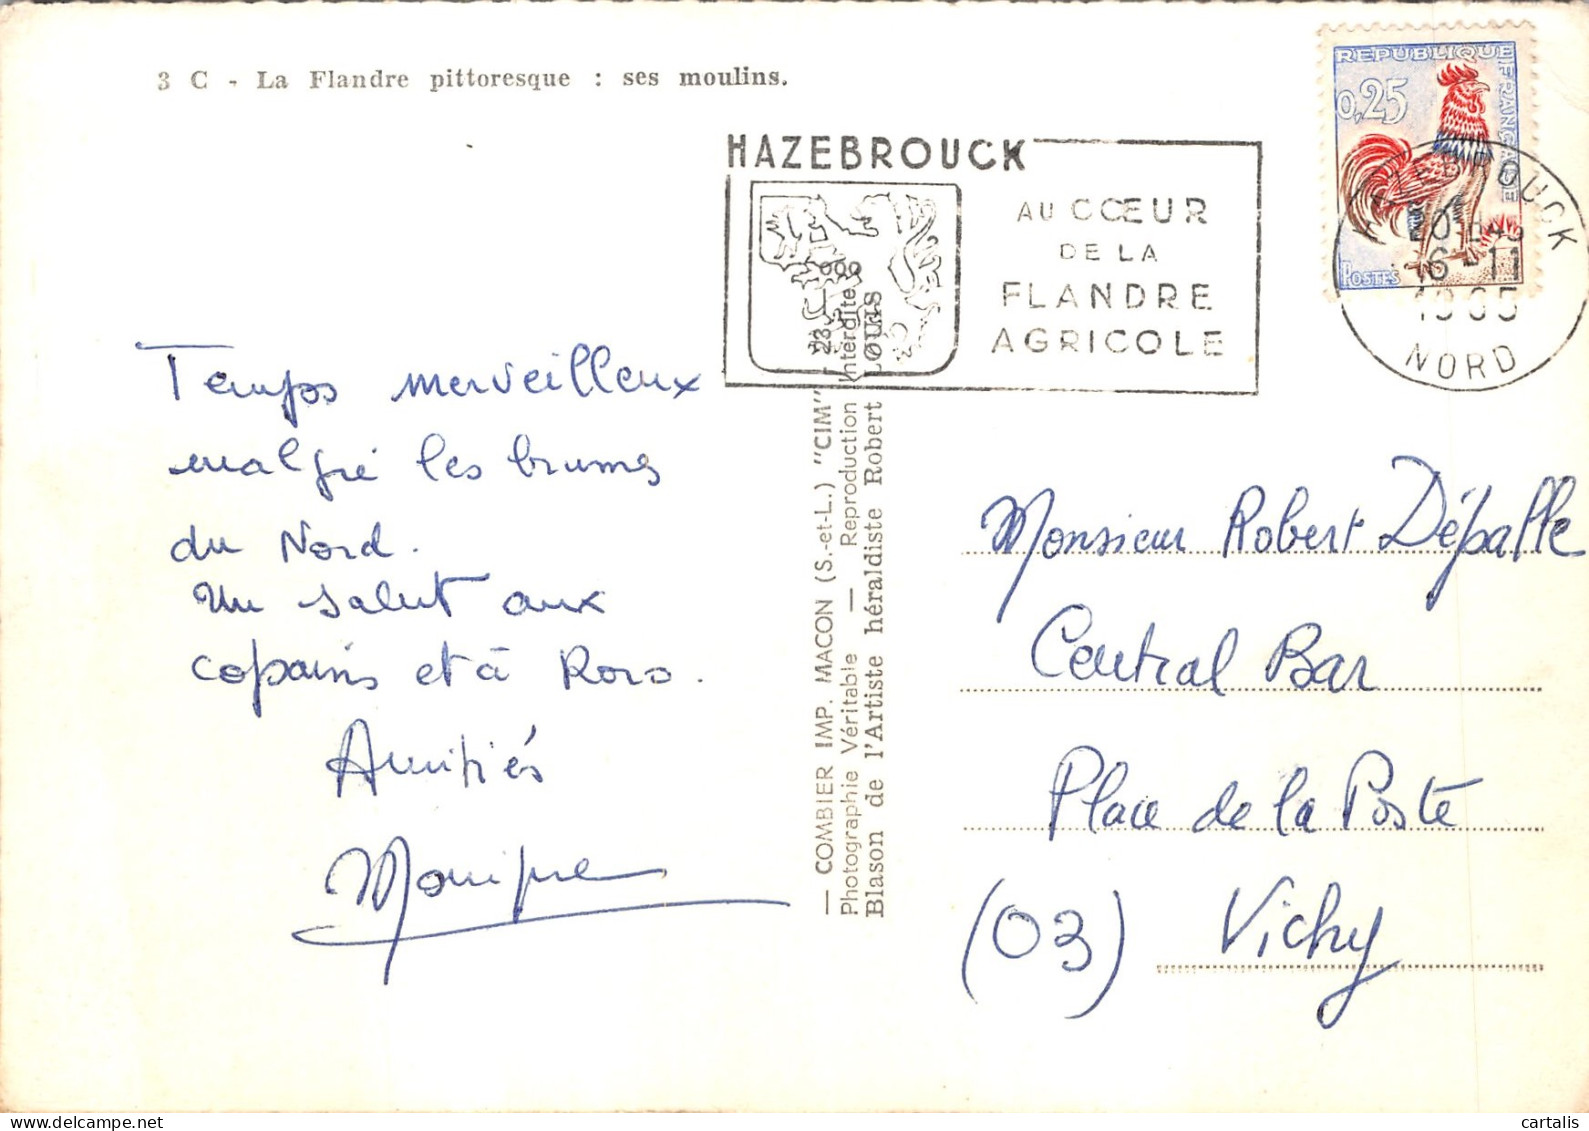 3 C - La Flandre pittoresque : ses moulins.
HAZEBROUCK
AU CŒUR
DE LA
FLANDRE
AGRICOLE
REPUBLIQUE
FRANÇAISE
0,25
POSTES
HAZEBROUCK
16-11
1965
NORD
Temps merveilleux
malgré les brumes
du Nord.
Un salut aux
copains et à Roro.
Amitiés
Monique
— COMBIER IMP. MACON (S.-et-L.) "CIM"
Photographie Véritable — Reproduction Interdite
Blason de l'Artiste héraldiste Robert LOUIS
Monsieur Robert Dépalle
Central Bar
Place de la Poste
(03) Vichy
cartalis